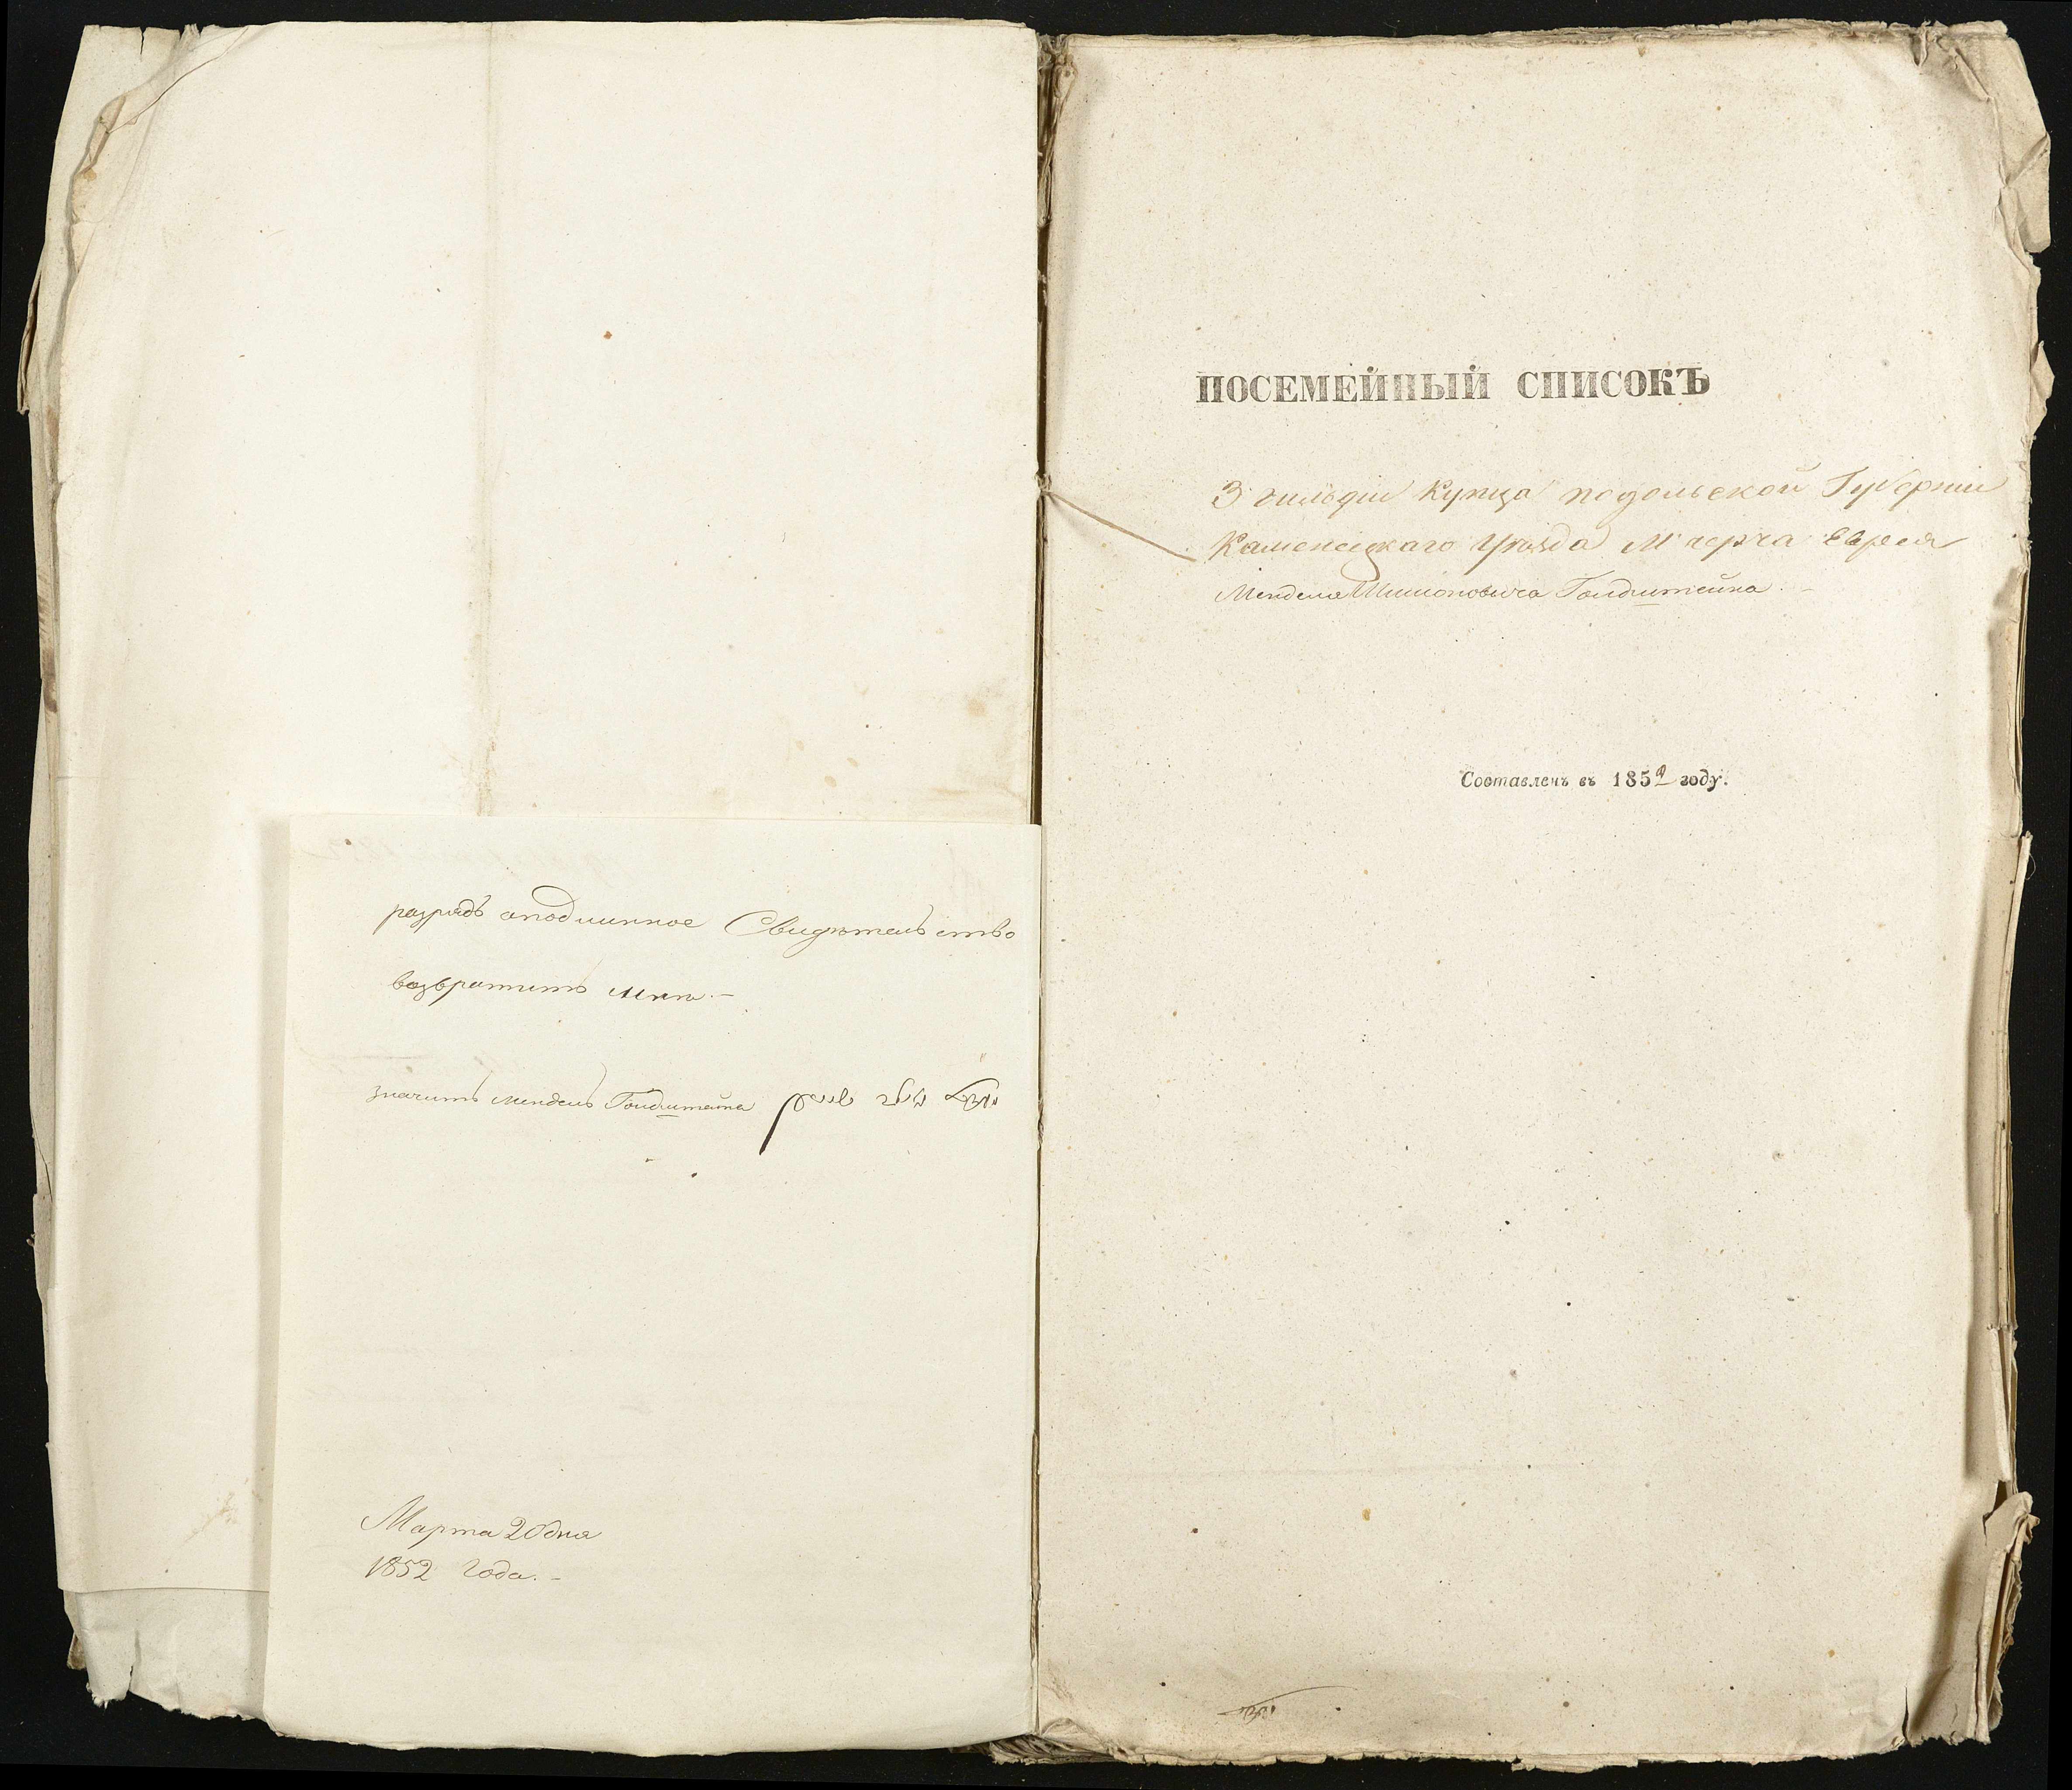 разрядъ аподлинное Свидѣтельство
возвратить мнѣ.-
значитъ Мендель Гольдштейнъ
Марта 20 дня
1852 года.-
ПОСЕМЕЙНЫЙ СПИСОКЪ
3 гильдіи Купца подольской Губерніи
Каменецкаго Уѣзда М черча Еврея
Менделя Шимоновича Гольдштейна.-
Составленъ въ 1852 году.